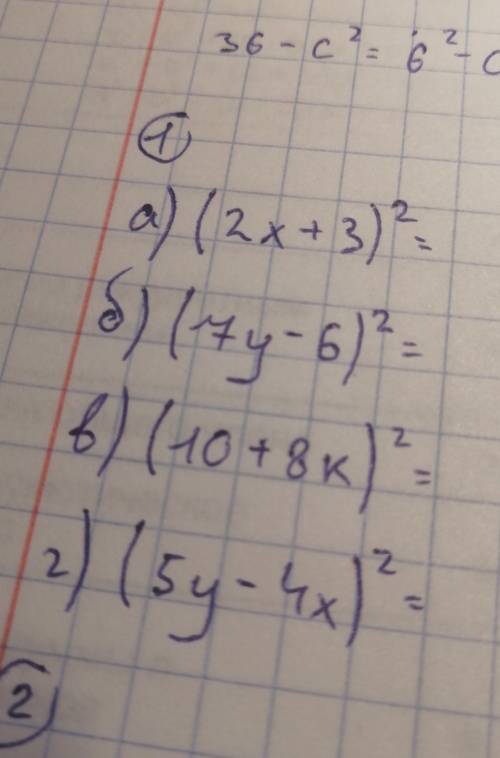 36 - c² = 6² - c
①
а) (2x + 3)² =
б) (7y - 6)² =
в) (10 + 8к)² =
г) (5y - 4x)² =
②